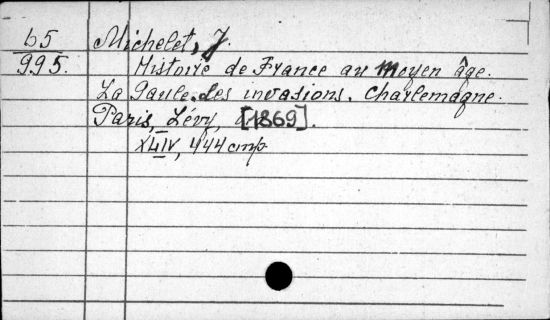 65
995.
Michelet, J.
Histoire de France au Moyen âge.
La Gaule. Les invasions. Charlemagne.
Paris, Lévy, [1869].
XLIV, 444 стр.